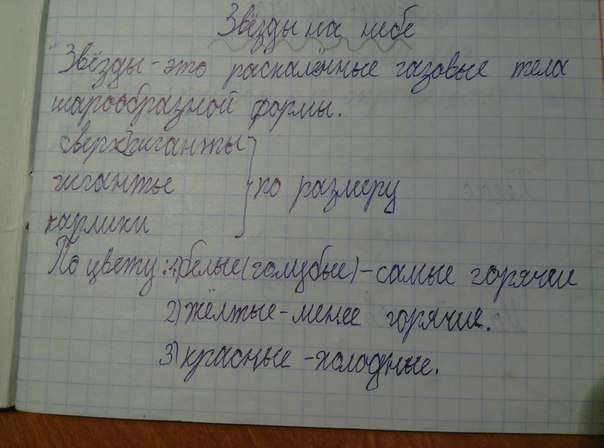 Звёзды на небе
Звёзды - это раскалённые газовые тела
шарообразной формы.
сверхгиганты
гиганты } по размеру
карлики
По цвету: 1) белые (голубые) - самые горячие
2) жёлтые - менее горячие.
3) красные - холодные.